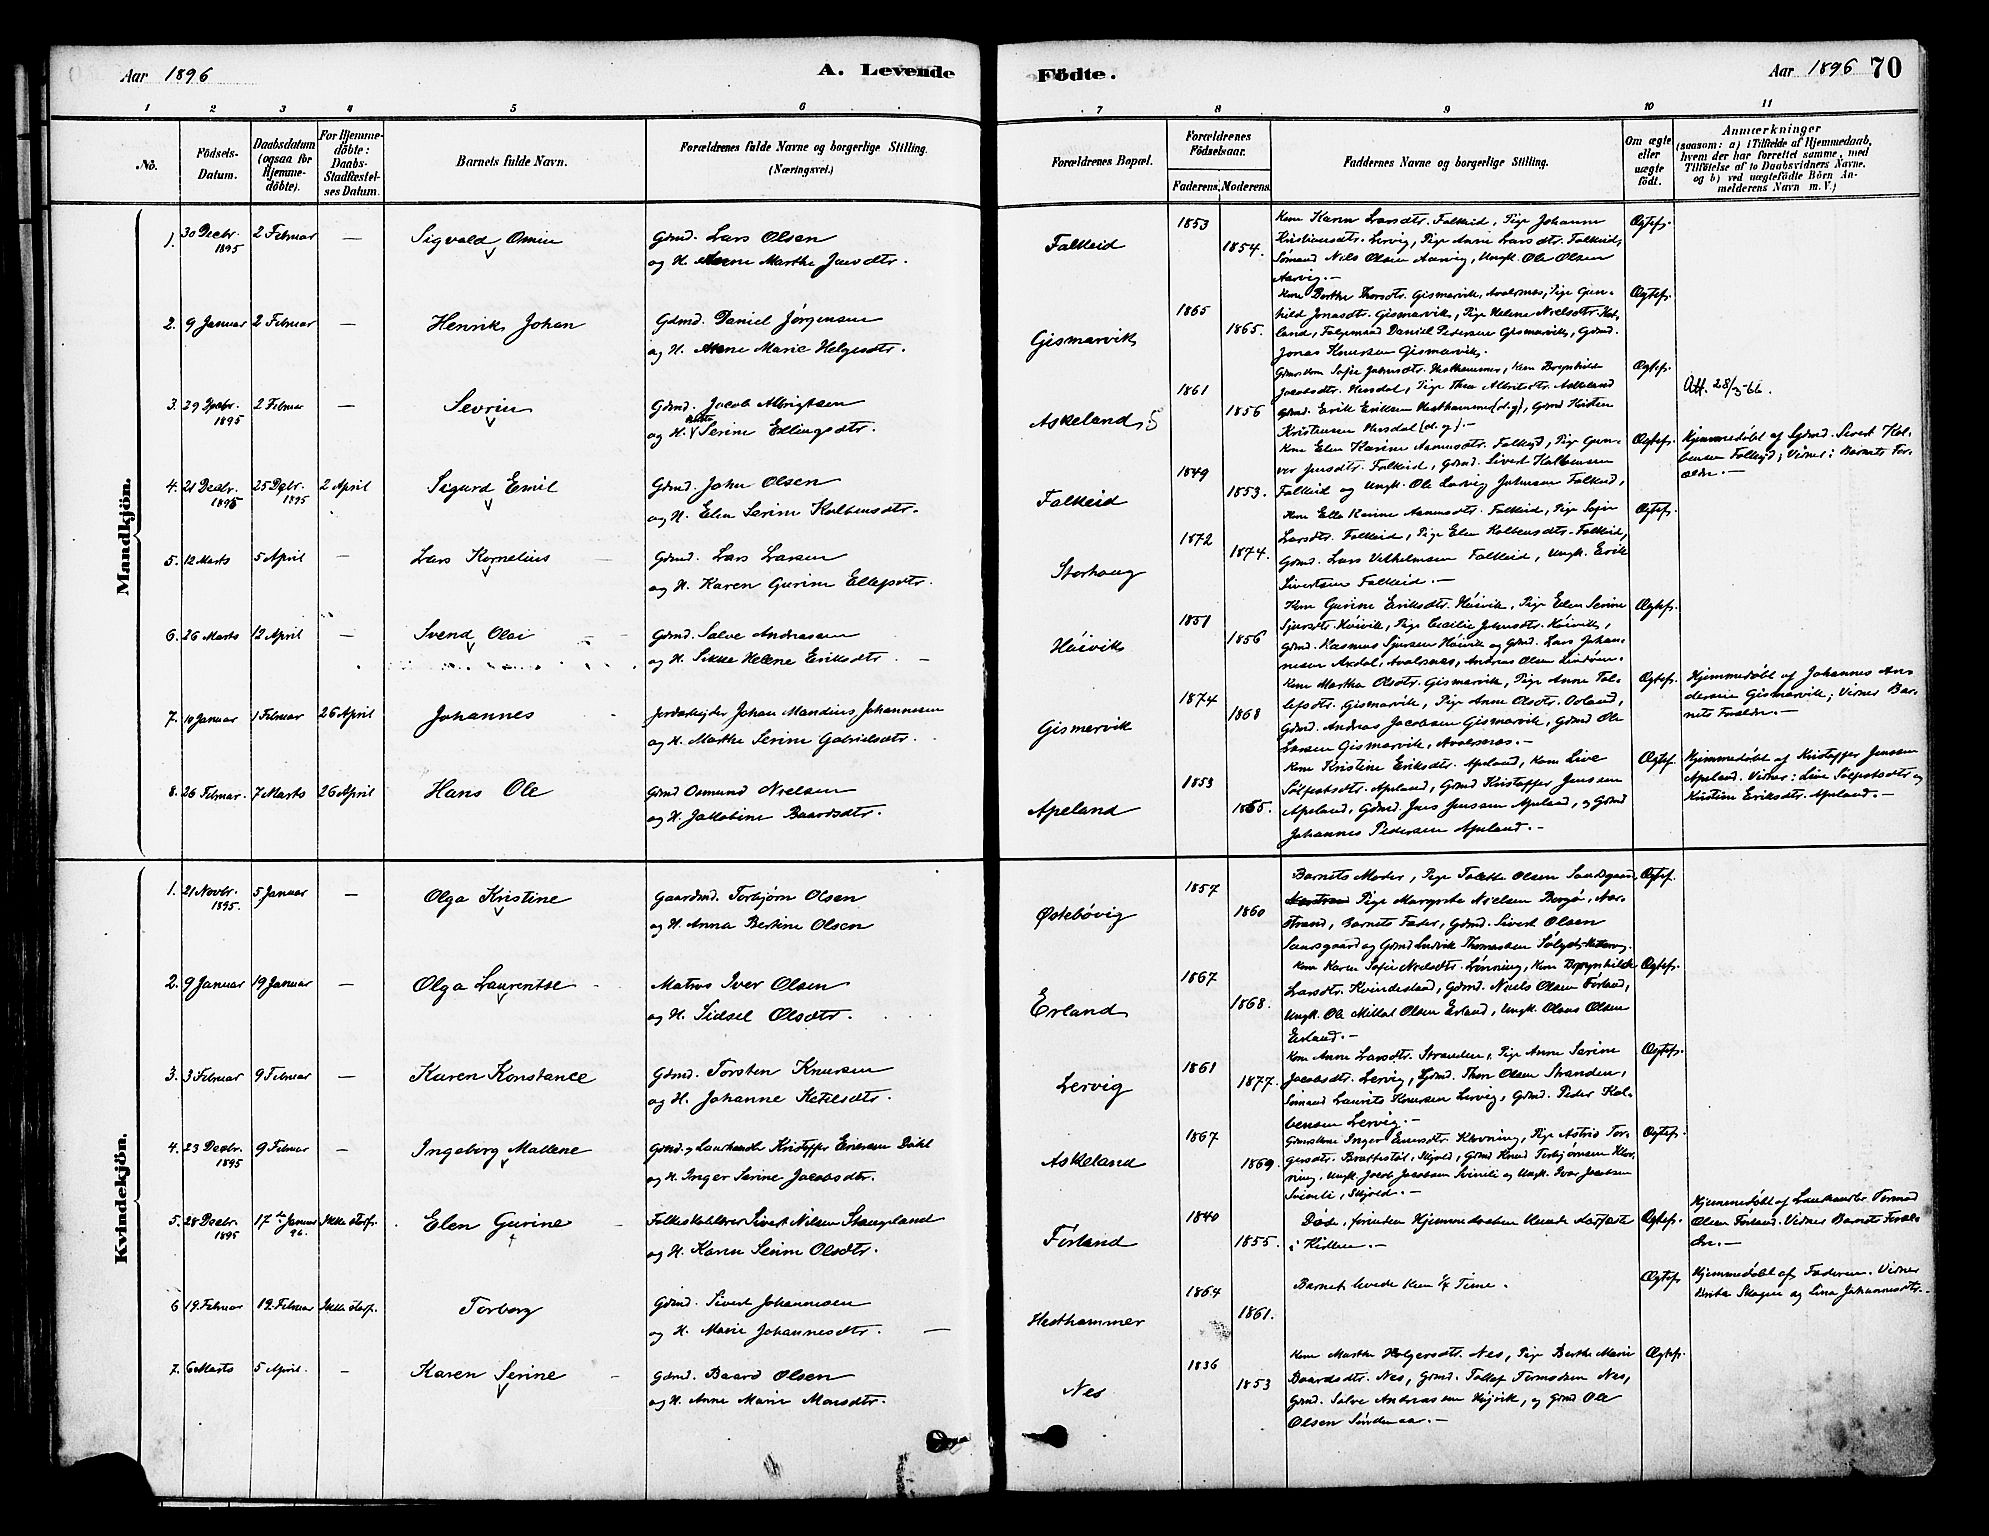 Aar 1896
A. Levende
Födte.
Aar 1896
70
1 2 3 4 5 6 7 8 9 10 11
No.
Födsels-Datum.
Daabsdatum (ogsaa for Hjemme-döbte).
For Hjemme-döbte: Daabs-Stadfæstel-ses Datum.
Barnets fulde Navn.
Forældrenes fulde Navne og borgerlige Stilling.
(Næringsvei.)
Forældrenes Bopæl.
Forældrenes Födselsaar.
Faderens. Moderens.
Faddernes Navne og borgerlige Stilling.
Om ægte eller uægte födt.
Anmærkninger
(saasom: a) i Tilfælde af Hjemmedaab,
hvem der har forrettet samme, med
Tilföielse af to Daabsvidners Navne.
og b) ved uægtefödte Börn An-
melderens Navn m. V.)
Mandkjön.
1. 30 Decbr. 1895 2 Februar — Sigvald Omin
Gdmd. Lars Olsen
og H. Anne Marthe Jansdtr.
Falkeid 1853 1854.
Kone Karen Larsdtr. Falkeid, Pige Johanne
Kristiansdtr. Lervig, Pige Anne Larsdtr. Falkeid,
Sømand Nils Olsen Aarvig, Ungk. Ole Olsen
Aarvig.—
Ægtef.
2. 9 Januar 2 Februar — Henrik Johan
Gdmd. Daniel Jørgensen
og H. Anne Marie Helgesdtr.
Gismarvik 1865 1865.
Kone Berthe Thorsdtr. Gismarvik, Avalsnes, Pige Gun-
hild Jonasdtr. Gismarvik, Pige Helene Nielsdtr.
land, Folgemand Daniel Pedersen Gismarvik, Gdmd.
Jonas Knutsen Gismarvik.
Ægtef.
3. 29 Decbr. 1895 2 Februar — Sevrin
Gdmd. Jacob Albrigtsen
og H. Serine Ellingsdtr.
Askeland, 5 1861 1856
Jacobsdtr. Husdal, Pige Thea Albrtsdtr. Askeland
Gdmd. Erik Eriksen Hesthammer (d.y.), Gdmd
Kristensen Husdal (d.y.).—
Ægtef.
Att. 28/3-66.
4. 21 Decbr. 1895 25 Dcbr. 1895 2 April Sigurd Emil
Gdmd. John Olsen
og H. Elen Serine Kolbensdtr.
Falkeid 1849 1853.
Kone Elen Karine Falkeid, Pige Gun-
vor Jensdtr. Falkeid, Gdmd. Sivert Kolbensen
Falkeid og Ungk. Ole Johnsen Falkeid,
Ægtef.
Hjemmedøbt af Gdmd. Sivert Kol-
bensen Falkeid; Vidner: Barnets For-
ældre.—
5. 12 Marts 5 April — Lars Kornelius
Gdmd. Lars Larsen
og H. Karen Gurine Ellefsdtr.
Storhaug 1872 1874.
Larsdtr. Falkeid, Pige Elen Kolbensdtr. Falkeid,
Gdmd. Lars Vilhelmsen Falkeid, Ungk. Erik
Sivertsen Falkeid.—
Ægtef.
6. 26 Marts 12 April — Svend Olai
Gdmd. Salve Andreasen
og H. Sikke Helene Eriksdtr.—
Høievik 1851 1856
Kone Gurine Eriksdtr. Høievik, Pige Elen Serine
Pige Cecilie Johnsdtr. Høievik,
Gdmd. Rasmus Sjursen Høievik og Gdmd. Lars Johan-
nesen Axdal, Avalsnes, Andreas Olsen
Ægtef.
7. 10 Januar 1 Februar 26 April Johannes
Jordarbeider Johan Mandius Johannesen
og H. Marthe Serine Gabrielsdtr.
Gismarvik 1874 1868
Kone Martha Olsdtr. Gismarvik, Pige Anne Tol-
lefsdtr. Gismarvik, Pige Anne Olsdtr.
Gdmd. Andreas Jacobsen Gismarvik, Gdmd Ole
Larsen Gismarvik, Avalsnes.—
Ægtef.
Hjemmedøbt af Johannes An-
dersen Gismarvik; Vidner Bar-
nets Forældre.—
8. 26 Februar. 7 Marts 26 April Hans Ole
Gdmd Osmund Nielsen
og H. Jakobine Baardsdtr.
Apeland 1853 1865.
Kone Kristine Eriksdtr. Apeland, Kone Live
Sølfestsdtr. Apeland, Gdmd Kristoffer Jensen
Apeland, Gdmd. Jens Jensen Apeland, og Gdmd
Johannes Pedersen Apeland.—
Ægtef.
Hjemmedøbt af Kristoffer Jensen
Apeland. Vidner: Live Sølfestsdtr og
Kristine Eriksdtr. Apeland.—
Kvindekjön.
1. 21 Novbr. 1895. 5 Januar — Olga Kristine
Gaardmd. Torbjørn Olsen
og H. Anna Bertine Olsen
Østebövig 1857 1860
Barnets Moder, Pige Olsen
Pige Margrete Nielsen Borgø, Nar-
strand, Barnets Fader, Gdmd. Sivert Olsen
og Gdmd Ludvik Thomassen
Ægtef.
2. 9 Januar 19 Januar — Olga Laurentse
Matros Iver Olsen
og H. Sidsel Olsdtr.
Erland 1867 1868.
Kone Karen Sofie Nielsdtr. Lønning, Kone Brynhilde
Larsdtr. Kvindesland, Gdmd. Niels Olsen Førland,
Ungk. Ole Mikkal Olsen Erland, Ungk. Olaus Olsen
Erland.—
Ægtef.
3. 3 Februar 9 Februar — Karen Konstance
Gdmd. Torsten Knutsen
og H. Johanne Ketelsdtr.
Lervig 1861 1877.
Kone Anne Larsdtr. Stranden, Pige Anne Serine
Jacobsdtr. Lervig, Gdmd. Thor Olsen Stranden,
Sømand Laurits Knutsen Lervig, Gdmd. Peder Kol-
bensen Lervig.—
Ægtef.
4. 23 Decbr. 1895 9 Februar — Ingeborg Mallene
Gdmd. og Landhandler Kristoffer Eriksen Dahl
og H. Inger Serine Jacobsdtr.
Askeland 1867 1869.
Inger Klovning, Pige Astrid Tor-
gersdtr. Skjold, Gdmd Knud Torbjørnsen Klov-
ning, Ungk. Jacob Jacobsen Svinali og Ungk. Ivar Jacobsen
Svinali, Skjold.—
Ægtef.
5. 28 Decbr. 1895 17de Januar 96. Ikke stadf. Elen Gurine
Folkeskolelærer Sivert Nilsen Stangeland
og H. Karen Serine Olsdtr.
Førland 1840 1855.
Døde, forinden Hjemmedaaben kunde stadfæstes
i Kirken.—
Ægtef.
Hjemmedøbt af Landhandler. Tormod
Olsen Førland. Vidner Barnets Foræl-
dre.—
6 19 Februar 19. Februar Ikke stadf. Torborg
Gdmd. Sivert Johannesen
og H. Marie Johannesdtr. —
Hesthammer 1864 1861.
Barnet levede kun ½ Time.
Ægtef.
Hjemmedøbt af Faderen. Vidner
Brita Skagen og Lina Johannesdtr.
7. 6 Marts 5 April. — Karen Serine
Gdmd. Baard Olsen
og H. Anne Marie Monsdtr.
Nes 1836 1853
Kone Marthe Holgersdtr. Nes, Pige Berthe Marie
Baardsdtr. Nes, Gdmd. Tollef Tormodsen Nes,
Gdmd. Salve Andreassen Høivik, og Gdmd Ole
Olsen Søndenaa.—
Ægtef.